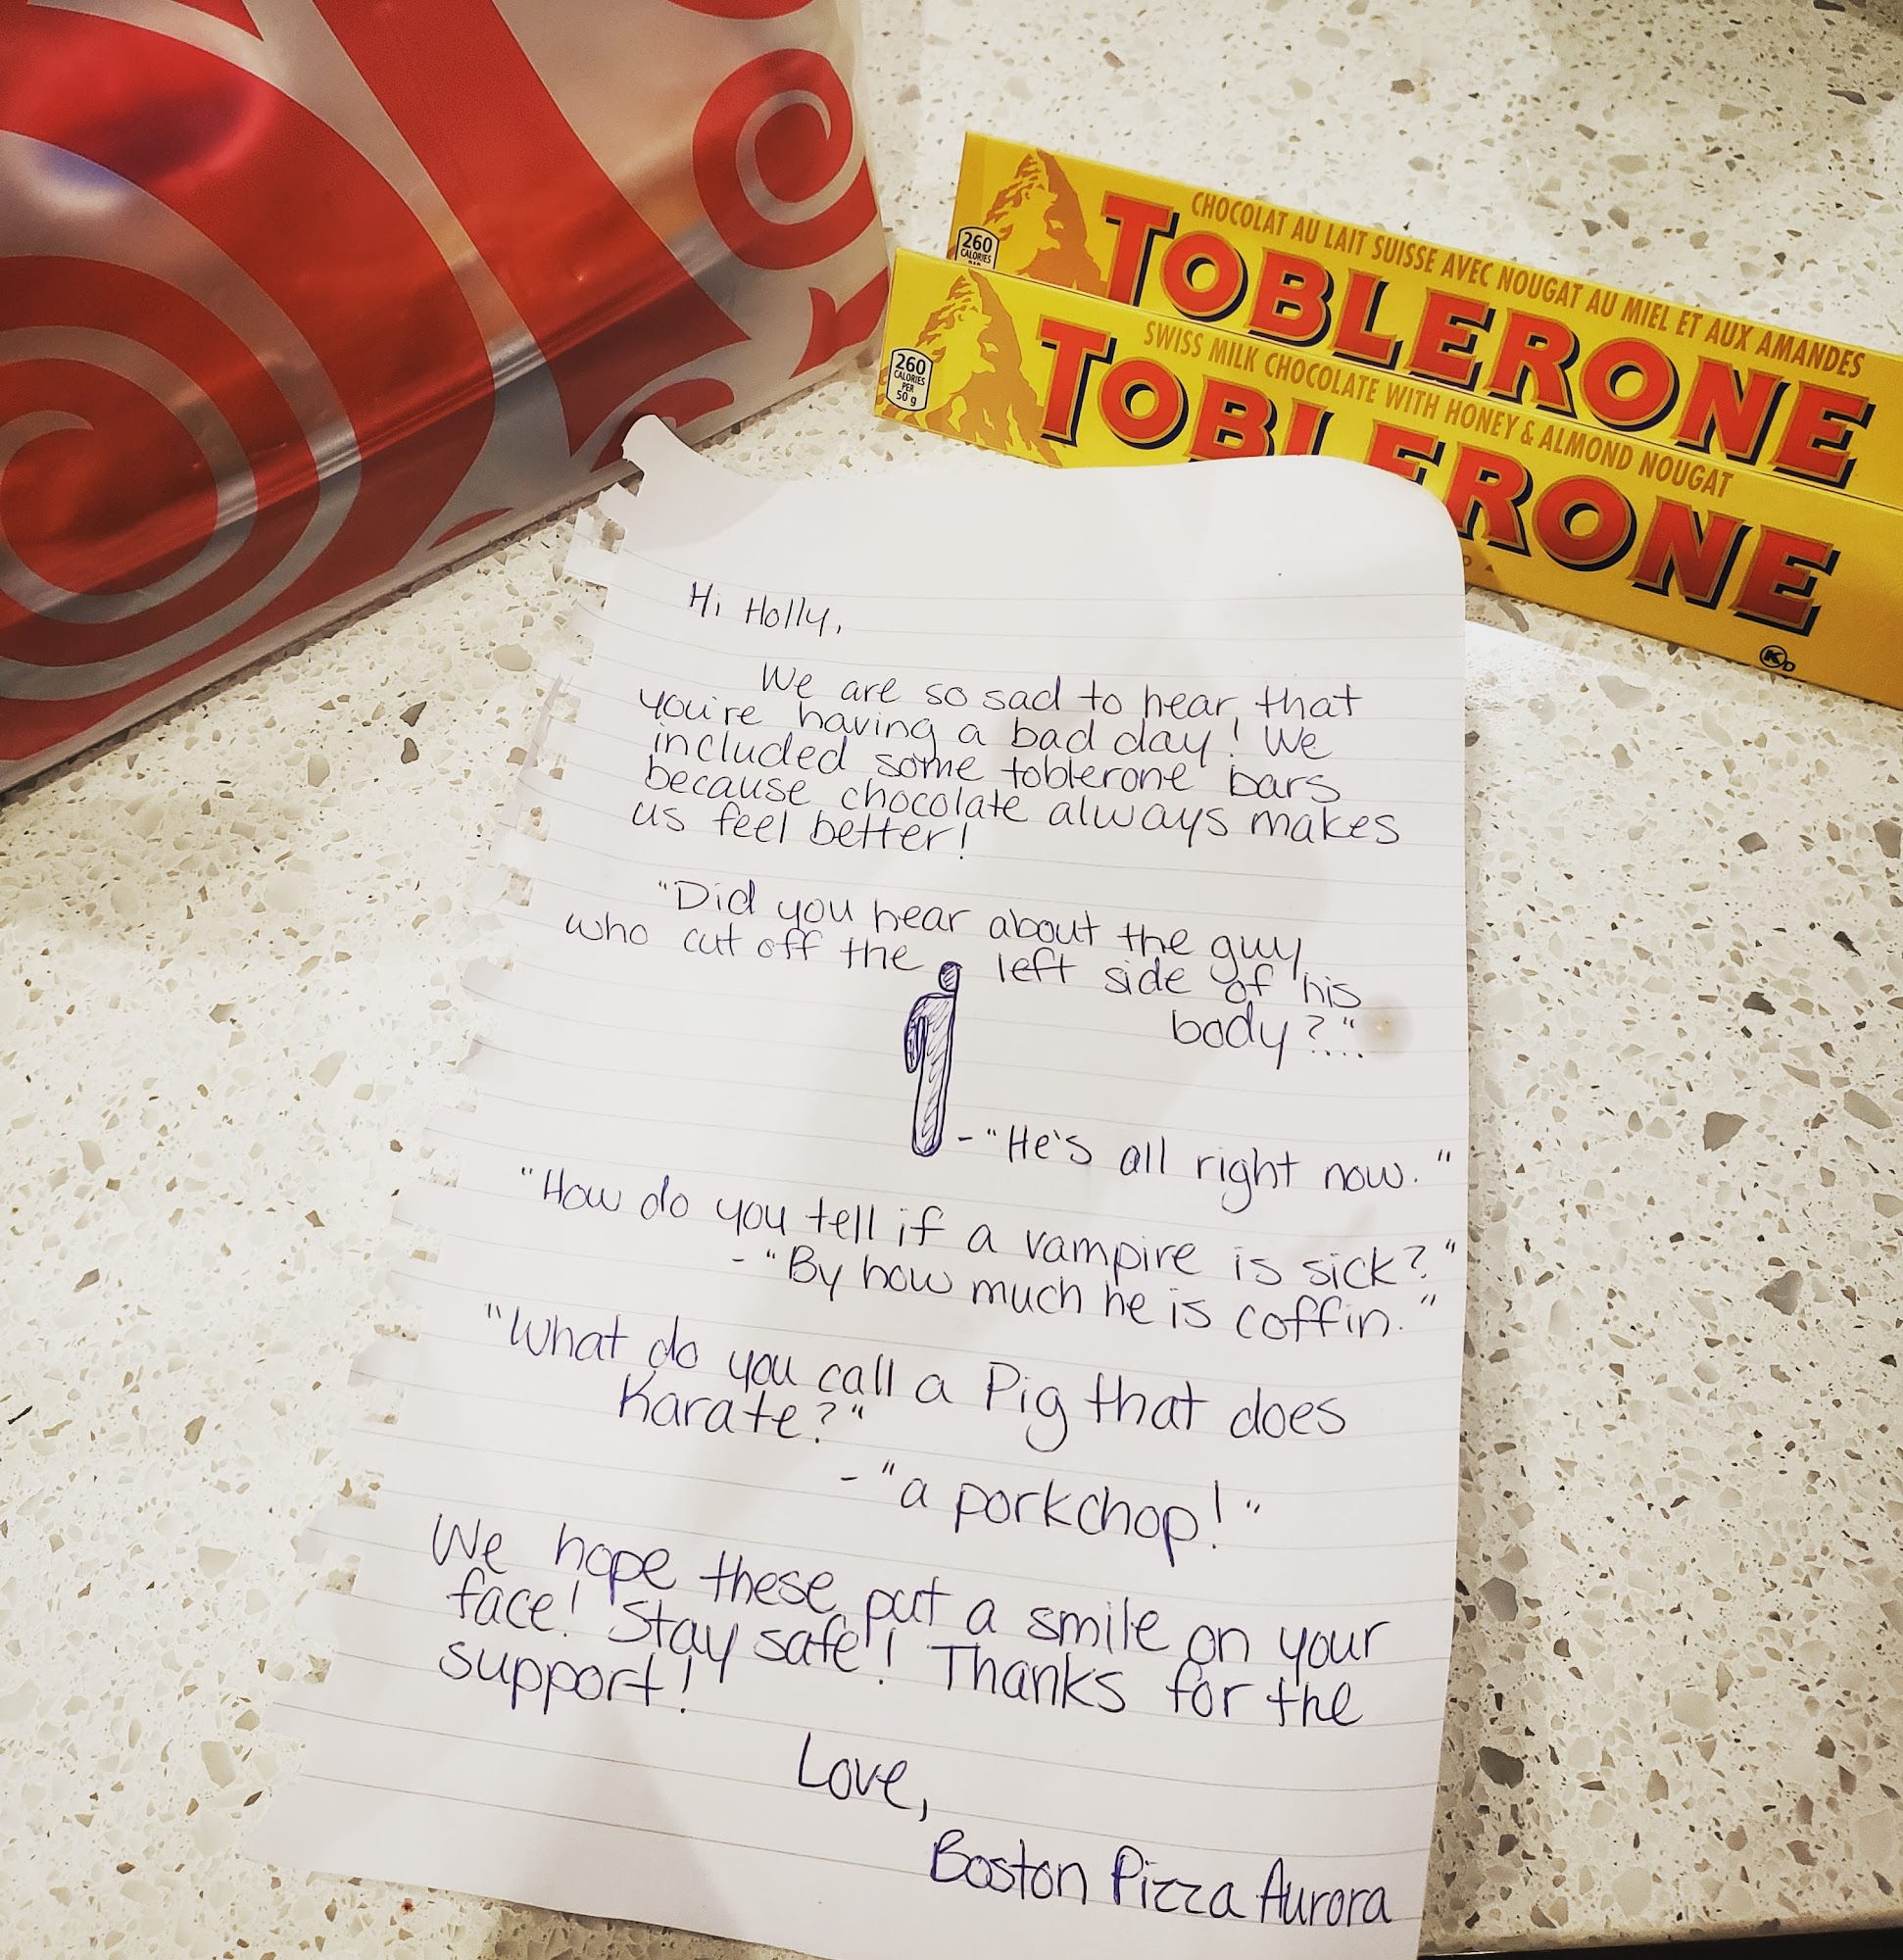 CHOCOLAT AU LAIT SUISSE AVEC NOUGAT AU MIEL ET AUX AMANDES
TOBLERONE
260
CALORIES
SWISS MILK CHOCOLATE WITH HONEY & ALMOND NOUGAT
TOBLERONE
260
CALORIES
PER
50 g
K D
Hi Holly,
We are so sad to hear that
you're having a bad day! We
included some toblerone bars
because chocolate always makes
us feel better!
"Did you hear about the guy
who cut off the left side of his
body?"....
- "He's all right now."
"How do you tell if a vampire is sick?"
- "By how much he is coffin."
"What do you call a Pig that does
Karate?"
- "a porkchop!"
We hope these put a smile on your
face! Stay safe! Thanks for the
support!
Love,
Boston Pizza Aurora